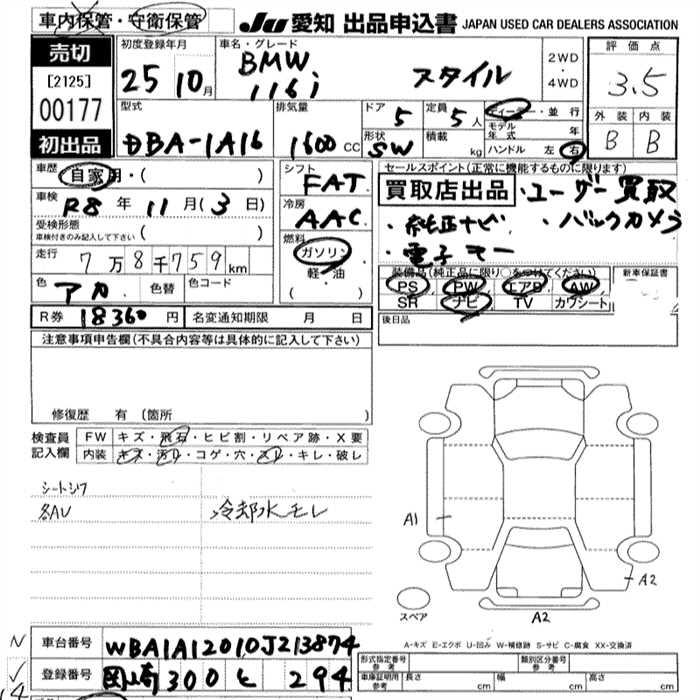 車内保管・守衛保管
JU 愛知 出品申込書 JAPAN USED CAR DEALERS ASSOCIATION
売切
[2125]
00177
初出品
初度登録年月
25 10月
車名・グレード
BMW
116i スタイル
2WD
・
4WD
評価点
3.5
外装 内装
B B
型式
DBA-1A16
排気量
1600 CC
ドア 5
定員 5人
形状 SW
積載 kg
ディーラー・並行
モデル年式 年
ハンドル 左 右
車歴
自家用・( )
車検
R8 年 11 月 (3 日)
受検形態
車検付きのみ記入して下さい ( )
走行
7万8千759km
色 アカ 色替 色コード
シフト
FAT
冷房
AAC
燃料
ガソリン
軽・油
( )
セールスポイント(正常に機能するものに限ります)
買取店出品 ・ユーザー買取
・純正ナビ ・バックカメラ
・電子キー
装備品(純正品に限り○をつけてください)
PS PW エアB AW
SR ナビ TV カワシート
新車保証書
後日品
R券 18360 円 名変通知期限 月 日
注意事項申告欄(不具合内容等は具体的に記入して下さい)
修復歴 有 (箇所 )
検査員
記入欄
FW キズ・飛石・ヒビ割・リペア跡・X要
内装 キズ・汚レ・コゲ・穴・スレ・キレ・破レ
シートシワ
各AU 冷却水モレ
A1
A2
スペア
A2
A-キズ E-エクボ U-凹み W-補修跡 S-サビ C-腐食 XX-交換済
車台番号 WBA1A12010J213874
登録番号 岡崎 300 と 294
形式指定番号
参考
類別区分番号
参考
車庫証明用
参考
長さ cm 幅 cm 高さ cm